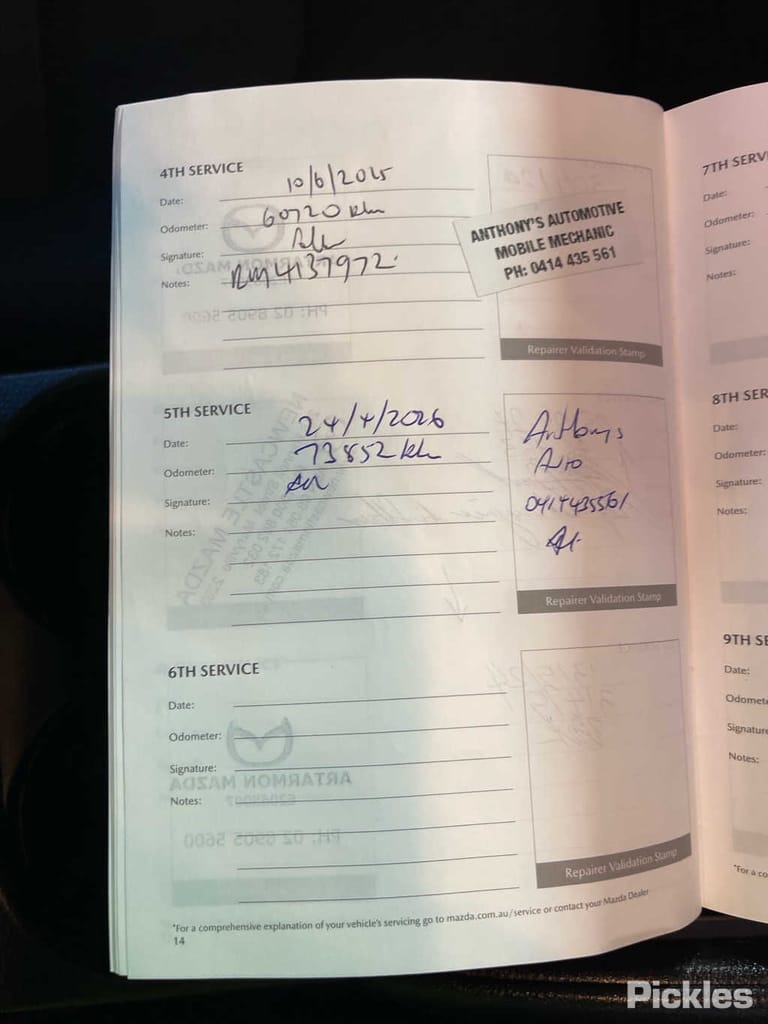 4TH SERVICE
Date: 10/6/2025
Odometer: 60720 km
Signature:
Notes: RM4137972
ANTHONY'S AUTOMOTIVE
MOBILE MECHANIC
PH: 0414 435 561
Repairer Validation Stamp
5TH SERVICE
Date: 24/4/2026
Odometer: 73852 km
Signature:
Notes:
Anthonys
Auto
0414435561
Repairer Validation Stamp
6TH SERVICE
Date:
Odometer:
Signature:
Notes:
ARTARMON MAZDA
PH: 02 8905 5600
Repairer Validation Stamp
*For a comprehensive explanation of your vehicle's servicing go to mazda.com.au/service or contact your Mazda Dealer
14
7TH SERV
Date:
Odometer:
Signature:
Notes:
8TH SER
Date:
Odometer:
Signature:
Notes:
9TH SE
Date:
Odomete
Signature
Notes:
*For a co
Pickles